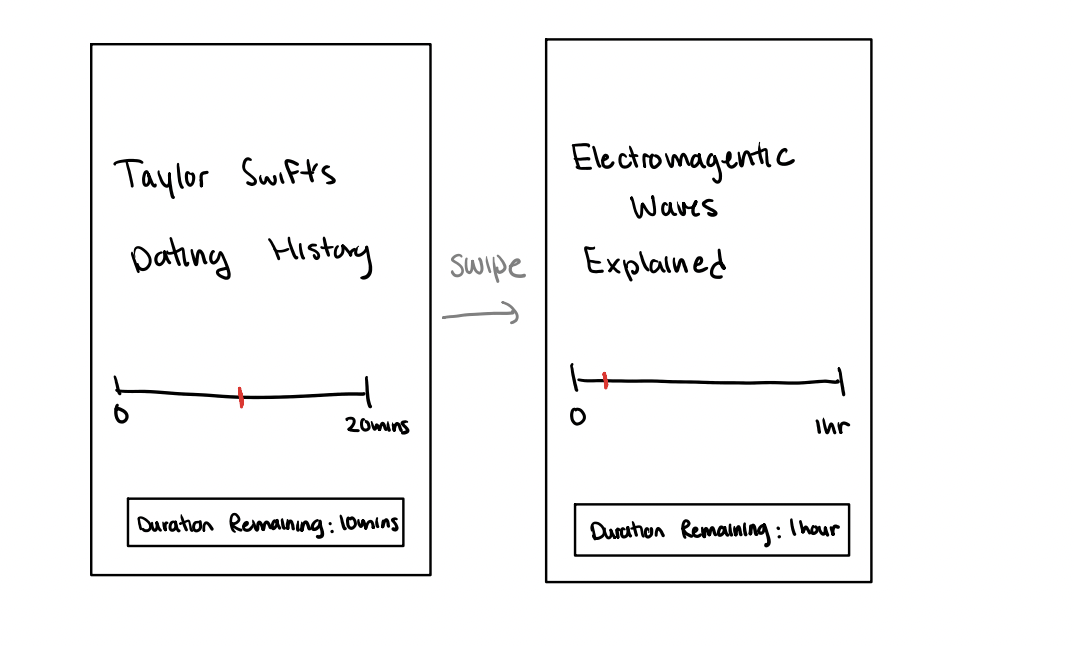 Taylor Swifts
Dating History
0
20mins
Duration Remaining: 10mins
swipe
Electromagentic
Waves
Explained
0
1hr
Duration Remaining: 1 hour